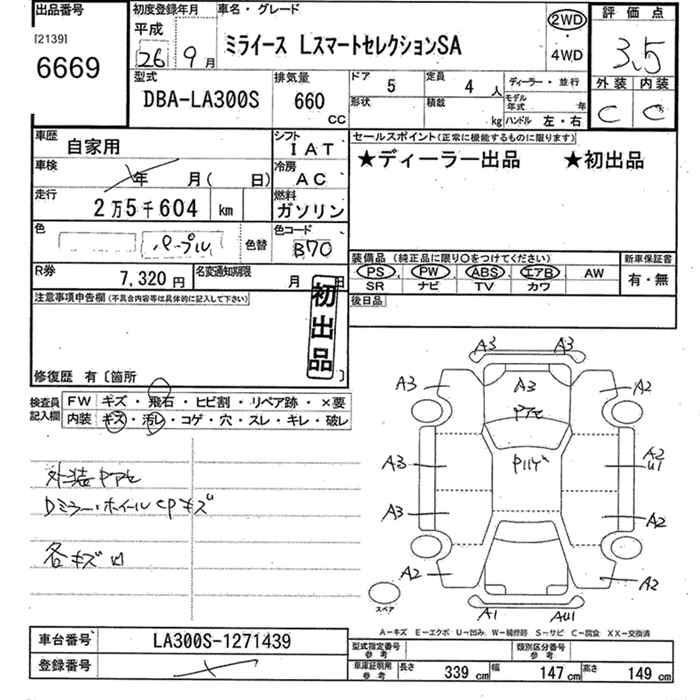 出品番号
[2139]
6669
初度登録年月
平成
26年 9月
車名・グレード
ミライース LスマートセレクションSA
2WD
・
4WD
評価点
3.5
外装 内装
C C
型式
DBA-LA300S
排気量
660
CC
ドア 5
定員 4 人
形状
積載
kg
ディーラー・並行
モデル年式 年
ハンドル 左・右
車歴
自家用
シフト
IAT
セールスポイント(正常に機能するものに限ります)
★ディーラー出品 ★初出品
車検
年 月( 日)
冷房
AC
走行
2万5千604 km
燃料
ガソリン
色
パープル
色替
色コード
B70
装備品 (純正品に限り○をつけてください)
PS, PW, ABS, エアB, AW
SR ナビ TV カワ
新車保証書
有・無
R券
7,320円
名変通知期限
月 日
後日品
注意事項申告欄(不具合内容等は具体的に記入して下さい)
初出品
修復歴 有〔箇所 〕
検査員
記入欄
FW キズ・飛石・ヒビ割・リペア跡・×要
内装 キズ・汚レ・コゲ・穴・スレ・キレ・破レ
外装
Dミラー・ホイールCPキズ
各キズ凹
A3 A3
A3 A3 A2
A3 A2
U1
A3 A2
A2 A2
A1 AU1
スペア
A-キズ E-エクボ U-凹み W-補修跡 S-サビ C-腐食 XX-交換済
車台番号
LA300S-1271439
登録番号
型式指定番号
参考
類別区分番号
参考
車庫証明用
参考
長さ 339 cm 幅 147 cm 高さ 149 cm